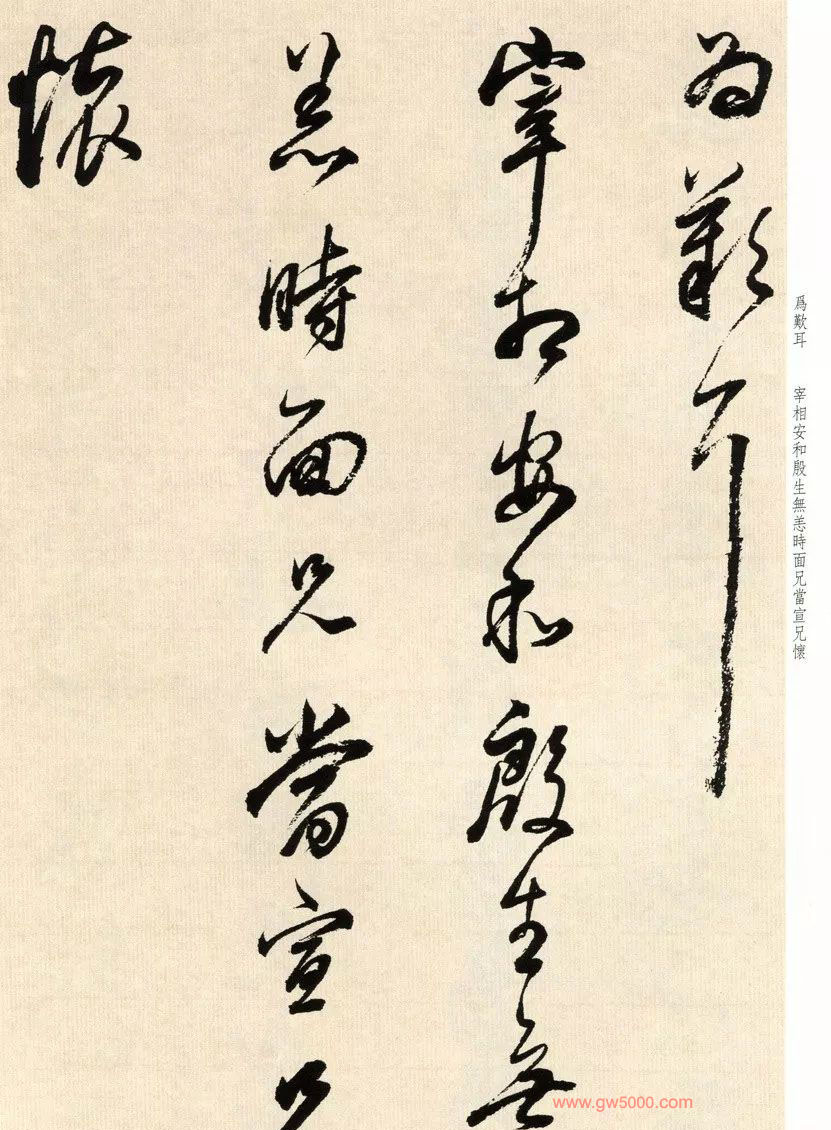 為歎耳
宰相安和殷生無
恙時面兄當宣兄
懷
為歎耳　宰相安和殷生無恙時面兄當宣兄懷
www.gw5000.com